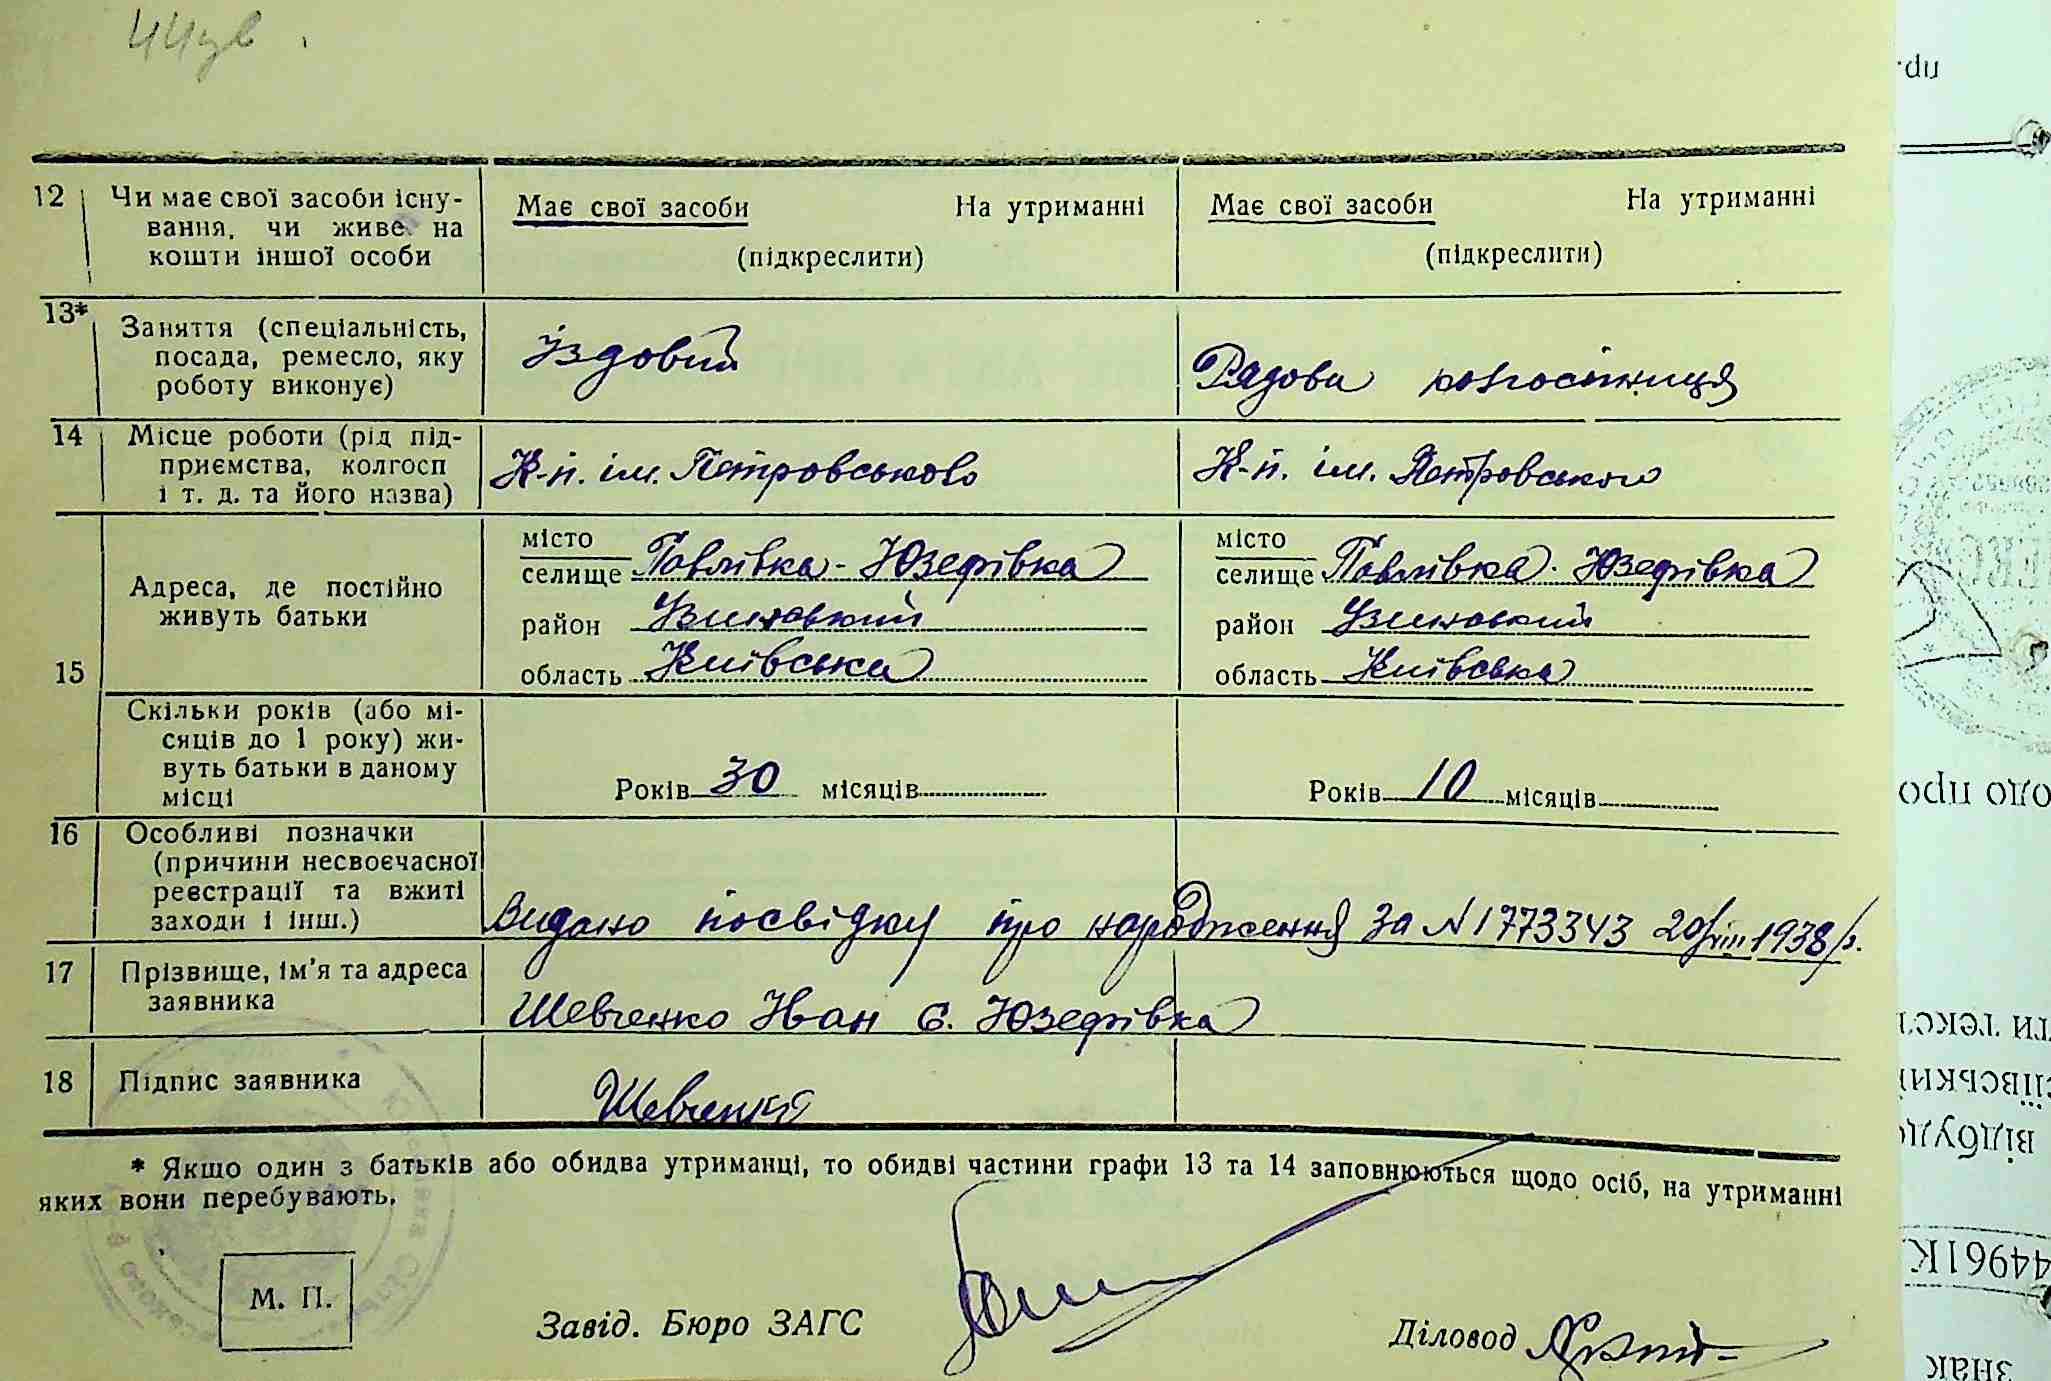 12 Чи має свої засоби існу-
вання, чи живе на
кошти іншої особи
Має свої засоби На утриманні
(підкреслити)
Має свої засоби На утриманні
(підкреслити)
13* Заняття (спеціальність,
посада, ремесло, яку
роботу виконує)
Їздовий
Рядова колгоспниця
14 Місце роботи (рід під-
приємства, колгосп
і т. д. та його назва)
К-п. ім. Петровського
К-п. ім. Петровського
15 Адреса, де постійно
живуть батьки
місто
селище Павлівка-Юзефівка
район Узинський
область Київська
місто
селище Павлівка-Юзефівка
район Узинський
область Київська
Скільки років (або мі-
сяців до 1 року) жи-
вуть батьки в даному
місці
Років 30 місяців
Років 10 місяців
16 Особливі позначки
(причини несвоєчасної
реєстрації та вжиті
заходи і інш.)
Видано посвідку про народження за № 1773343 20/VIII 1938 р.
17 Прізвище, ім'я та адреса
заявника
Шевченко Іван с. Юзефівка
18 Підпис заявника
Шевченко
* Якщо один з батьків або обидва утриманці, то обидві частини графи 13 та 14 заповнюються щодо осіб, на утриманні
яких вони перебувають.
М. П.
Завід. Бюро ЗАГС
Діловод
44961К
знак